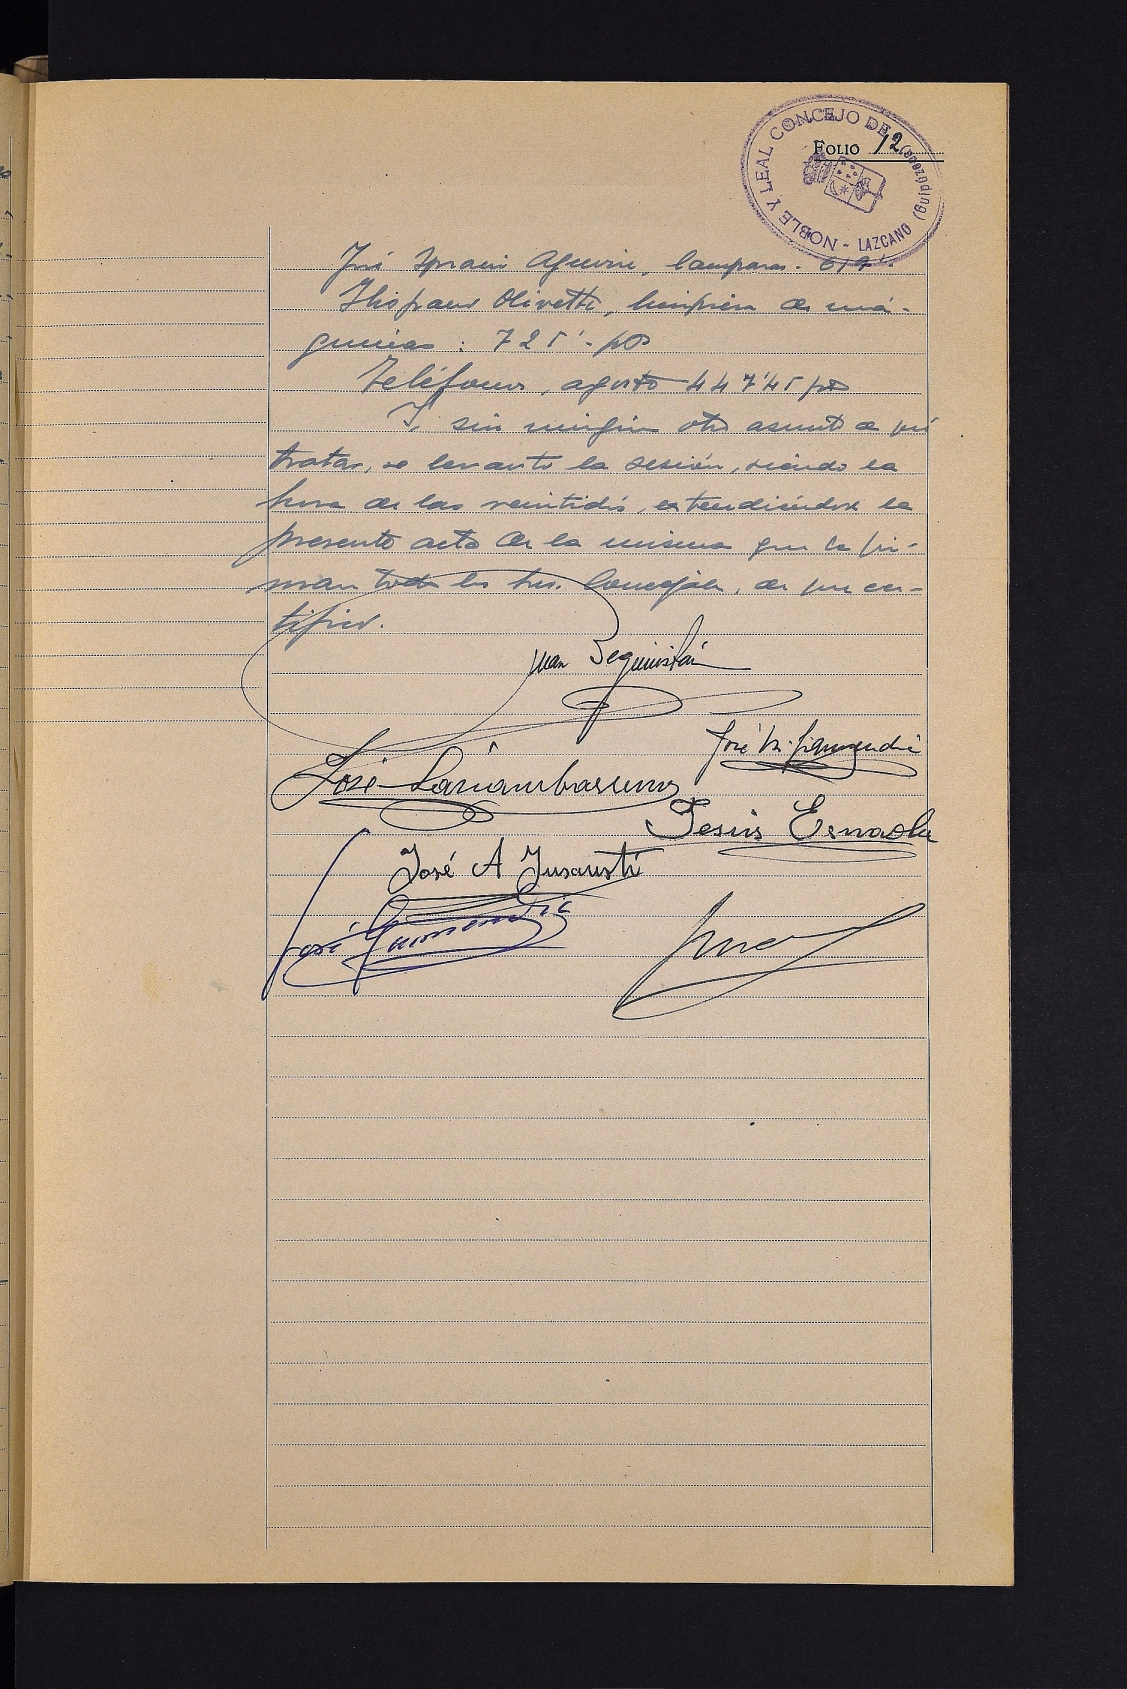 NOBLE Y LEAL CONCEJO DE - LAZCANO (Guipúzcoa)
FOLIO 12
José Aguirre, lámparas. 619'-
Hispano Olivetti, limpieza de má-
quinas: 725'- pts
Teléfonos, agosto 447'45 pts
Y, sin ningún otro asunto a que
tratar, se levantó la sesión, siendo la
hora de las veintidós, extendiéndose la
presente acta de la misma que la fir-
man todos los Sres. Concejales, de que cer-
tifico.
Juan Beguiristain
José M. Garmendia
José Larrañaga
Jesús Esnaola
José A Insausti
José Garmendia